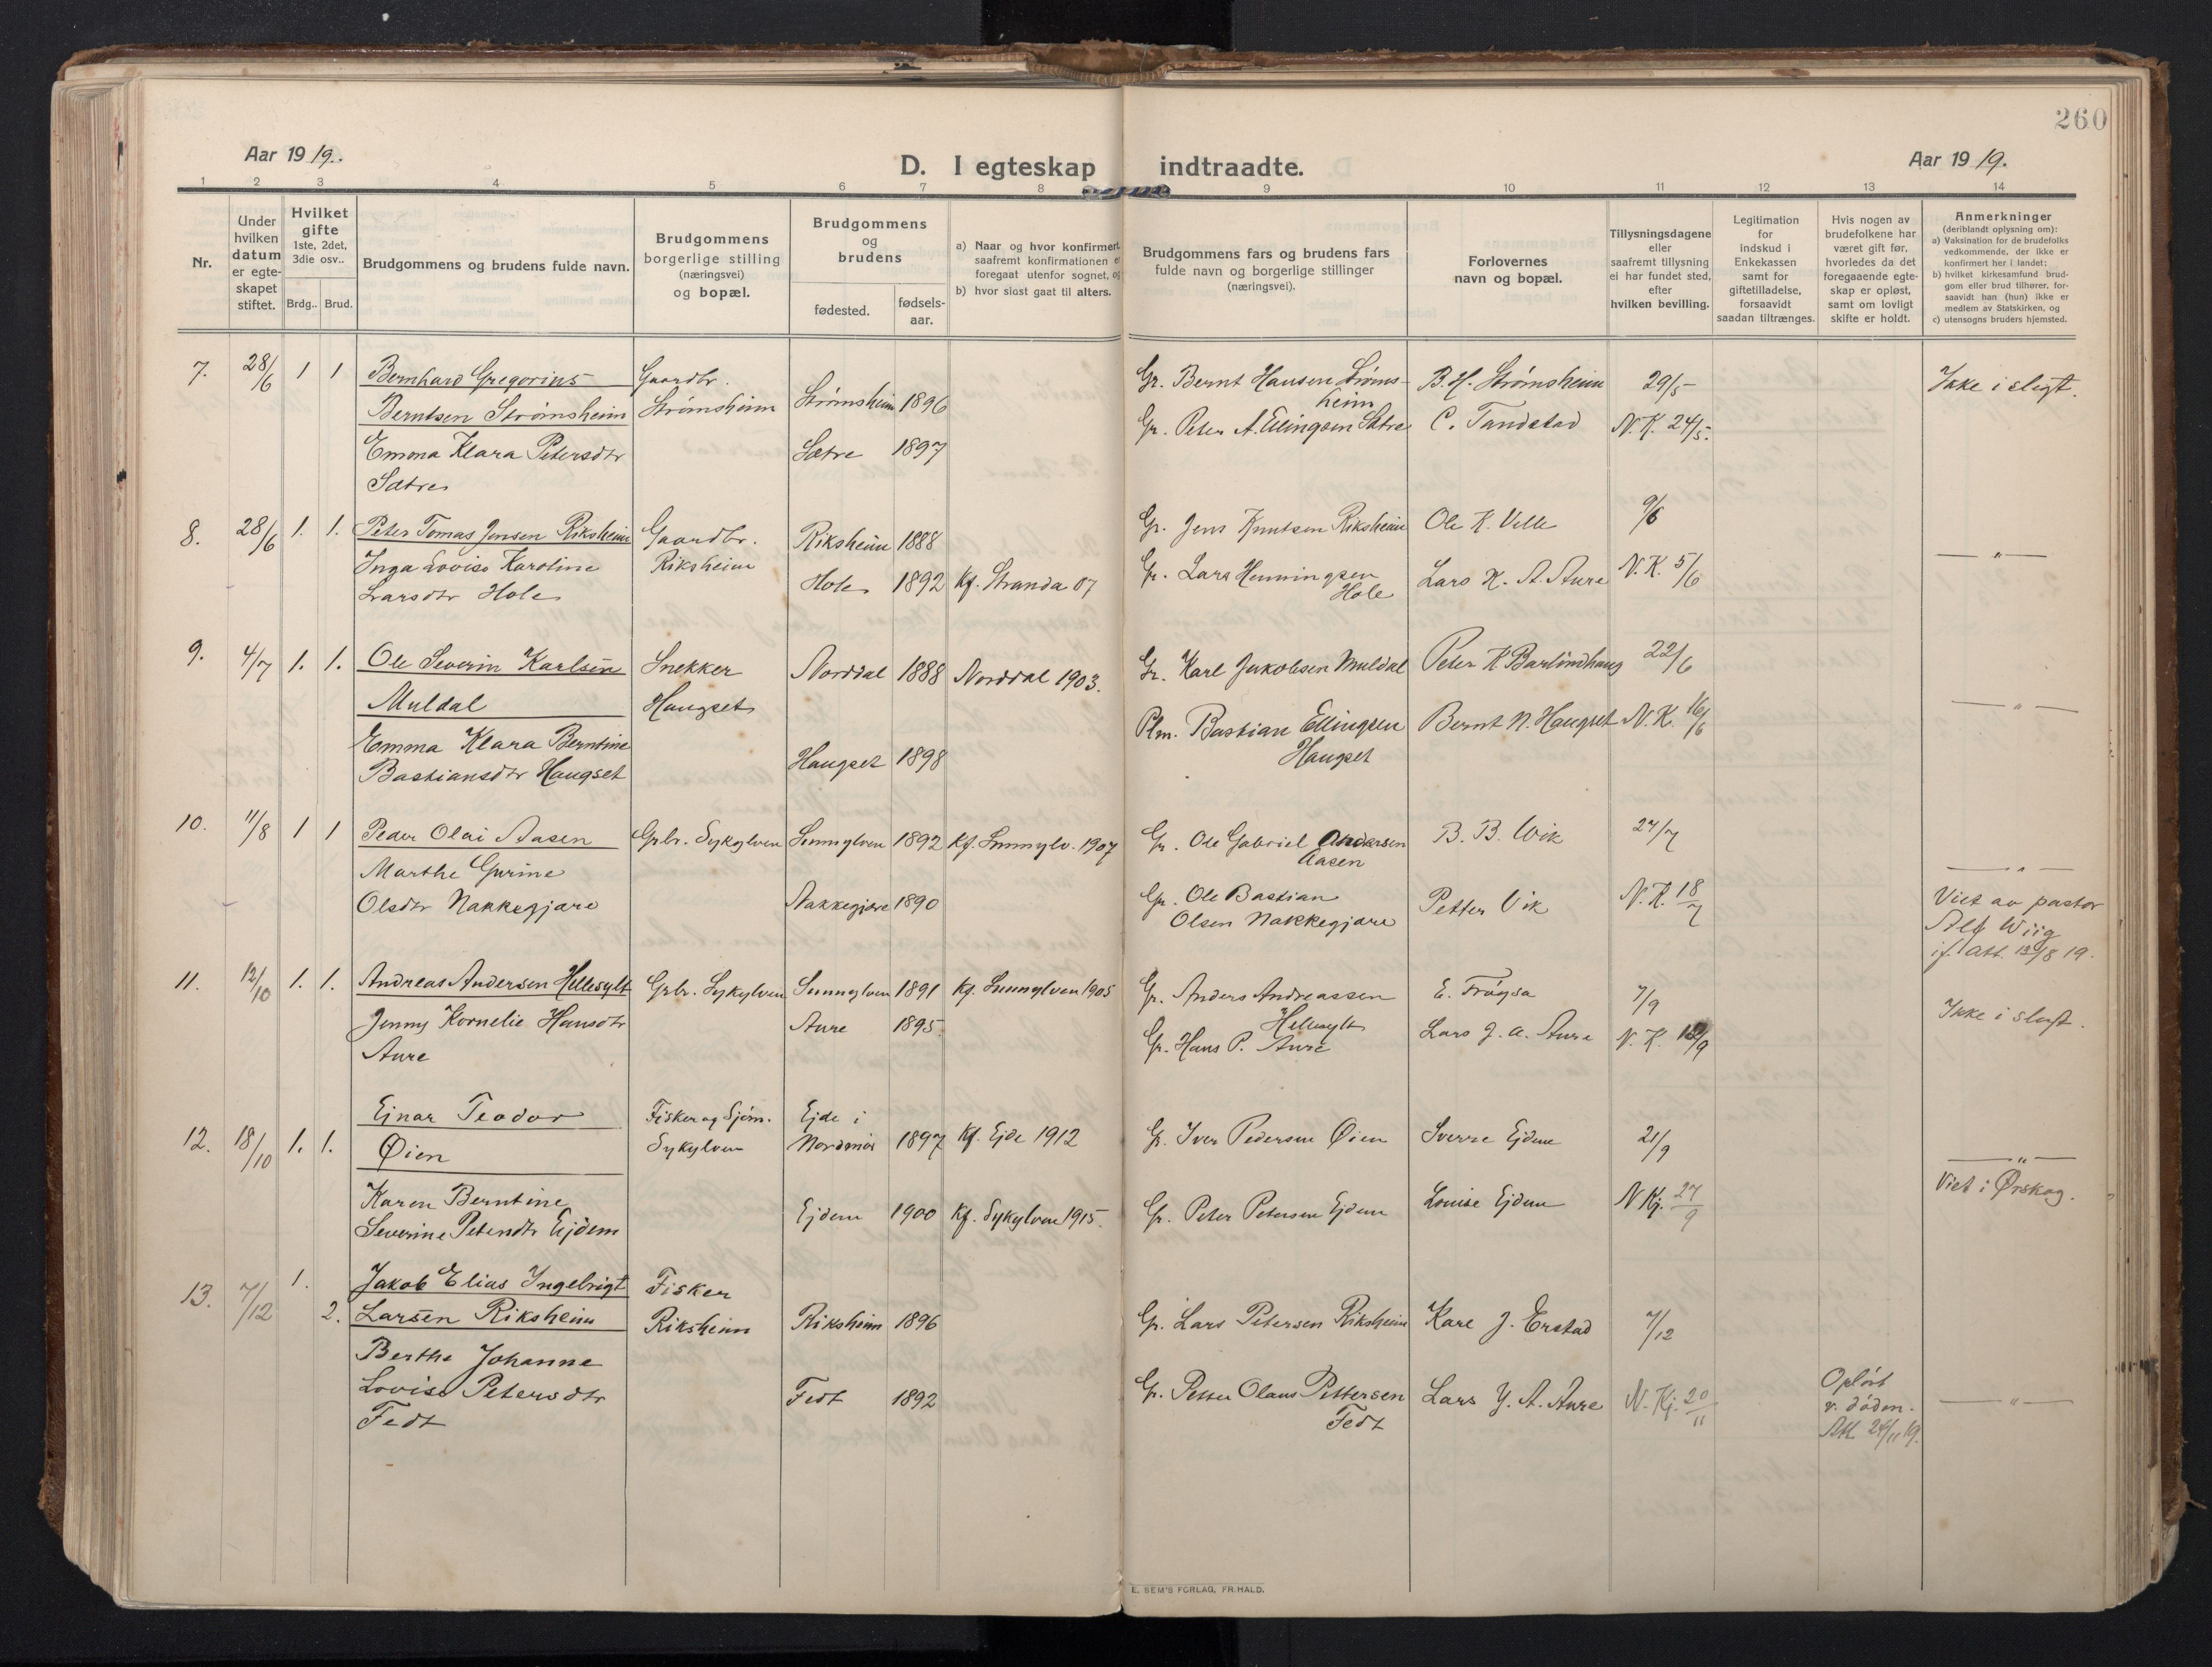 260
Aar 1919.
D. I egteskap indtraadte.
Aar 1919.
1 2 3 4 5 6 7 8 9 10 11 12 13 14
Nr.
Under
hvilken
datum
er egte-
skapet
stiftet.
Hvilket
gifte
1ste, 2det,
3die osv..
Brdg.. Brud.
Brudgommens og brudens fulde navn.
Brudgommens
borgerlige stilling
(næringsvei)
og bopæl.
Brudgommens
og
brudens
fødested.
fødsels-
aar.
a) Naar og hvor konfirmert
saafremt konfirmationen e
foregaat utenfor sognet, og
b) hvor sidst gaat til alters.
Brudgommens fars og brudens fars
fulde navn og borgerlige stillinger
(næringsvei).
Forlovernes
navn og bopæl.
Tillysningsdagene
eller
saafremt tillysning
ei har fundet sted,
efter
hvilken bevilling.
Legitimation
for
indskud i
Enkekassen
samt for
giftetilladelse,
forsaavidt
saadan tiltrænges.
Hvis nogen av
brudefolkene har
været gift før,
hvorledes da det
foregaaende egte-
skap er opløst,
samt om lovligt
skifte er holdt.
Anmerkninger
(deriblandt oplysning om):
a) Vaksination for de brudefolks
vedkommende, der ikke er
konfirmert her i landet;
b) hvilket kirkesamfund brud-
gom eller brud tilhører, for-
saavidt han (hun) ikke er
medlem av Statskirken, og
c) utensogns bruders hjemsted.
7. 28/6 1 1 Bernhard Gregorius Gaardbr. Gr. Bernt Hansen Strøms- B. H. Strømsheim 29/5 Ikke i slegt.
Berntsen Strømsheim Strømsheim Strømsheim 1896 heim
Gr. Peter A. Ellingsen Sætre C. Tandstad N. K. 24/5.
Emma Klara Petersdtr Sætre 1897
Sætre
8. 28/6 1. 1. Peter Tomas Jensen Riksheim Gaardbr. Riksheim 1888 Gr. Jens Knutsen Riksheim Ole K. Velle 9/6 — " —
Inga Lovise Karoline Riksheim
Larsdtr Hole Hole 1892 Kf. Stranda 07 Gr. Lars Henningsen Lars K. A. Aure N. K. 5/6
Hole
9. 4/7 1. 1. Ole Severin Karlsen Snekker Norddal 1888 Norddal 1903. Gr. Karl Jakobsen Muldal Peter K Barlindhaug 22/6
Muldal Haugset — " —
Emma Klara Berntine Plm. Bastian Ellingsen Bernt N. Haugset N. K. 16/6
Bastiansdtr Haugset Haugset 1898 Haugset
10. 11/8 1 1 Peder Olai Aasen Grbr. Sykylven Sunnylven 1892 Kf. Sunnylv. 1907 Gr. Ole Gabriel Andersen B. B. Wik 27/7
Aasen
Marthe Gurine — " —
Olsdtr Nakkegjære Nakkegjære 1890 Gr. Ole Bastian Petter Vik N. K. 18/7 Viet av pastor
Olsen Nakkegjære Alf Wiig
if. att. 13/8 19.
11. 12/10 1. 1. Andreas Andersen Hellesylt Grbr. Sykylven Sunnylven 1891 Kf. Sunnylven 1905 Gr. Anders Andreassen E. Frøysa 7/9
Hellesylt Ikke i slegt.
Jenny Kornelie Hansdtr Aure 1895. Gr. Hans P. Aure Lars J. A. Aure N. K.
Aure
12. 18/10 1. 1. Ejnar Teodor Fisker og Sjøm. Ejde i
Øien Sykylven Nordmør 1897 Kf. Ejde 1912 Gr. Iver Pedersen Øien Sverre Ejdem 21/9
— " —
Karen Berntine Viet i Ørskog.
Severine Petersdtr Ejdem Ejdem 1900 Kf. Sykylven 1915. Gr. Peter Petersen Ejdem Louise Ejdem N Kj. 27/9
13. 7/12 1. Jakob Elias Ingebrigt Fisker
2. Larsen Riksheim Riksheim Riksheim 1896 Gr. Lars Petersen Riksheim Kare J. Erstad 7/12
Berthe Johanne
Lovise Petersdtr Fedt 1892 Gr. Petter Olaus Pettersen Lars J. A. Aure N. Kj. 20/11 Opløst — " —
Fedt Fedt v. døden.
Att 24/11 19.
E. SEM'S FORLAG, FR.HALD.